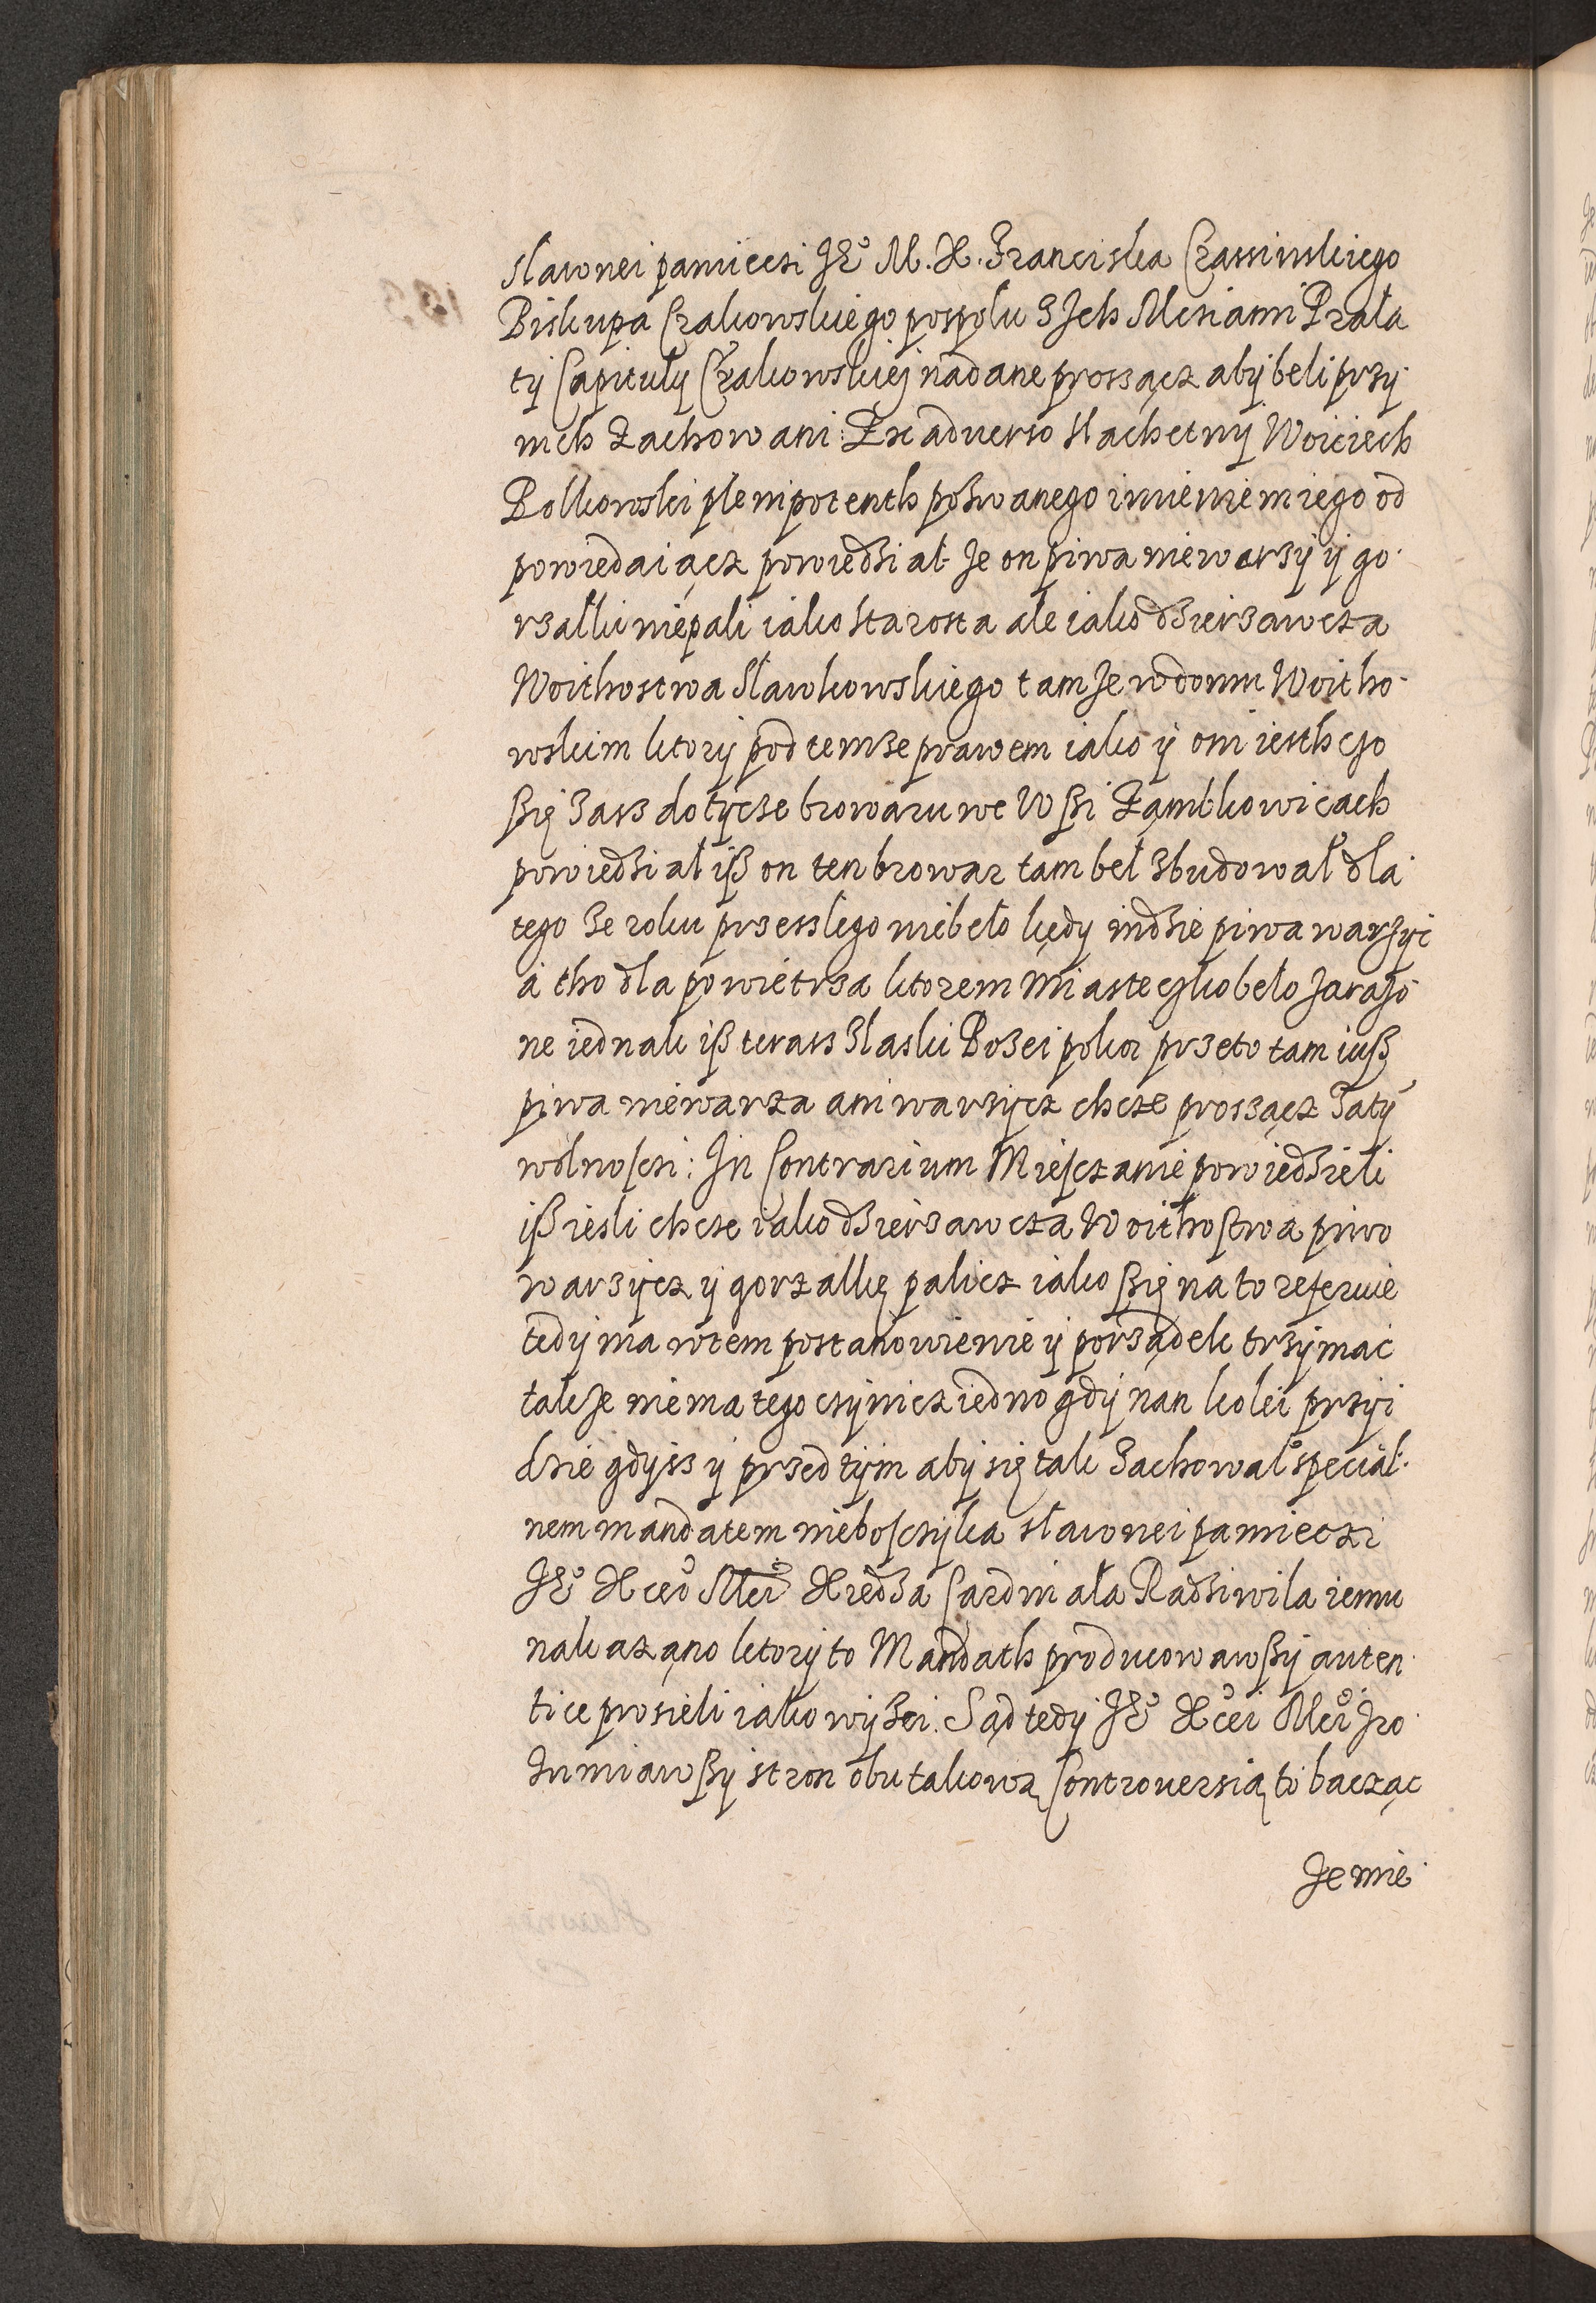 slawnei pamięczi Jeo M. X. Franciska Crassinskiego
Biskupa Crakowskiego pospolu z Jch Mcziami Prała
ty Capituły Crakowskiej nadane prosząncz aby beli przy
nich zachowani: Ex aduerso slachetny Woiciech
Bolkowski plenipotenth poźwanego imieniem iego od
powiedaiącz powiedział że on piwa niewarzy y go
rzałki niepali iako starosta ale iako dzierzawcza
Woithostwa Slawkowskiego tamże w domu Woitho
wskim ktory pod temże prawem iako y oni iesth cżo
się zass dotycze browaru we Wsi Ząmbkowicach
powiedział isz on ten browar tam beł zbudował dla
tego że roku przesslego niebeło kędy indzie piwa warżyć
a tho dla powietrza ktorem Miasteczko beło żarażo
ne iednak isz terass z laski Bożei pokoi przeto tam iusz
piwa niewarza ani warzycz chcze prosząncz za ty
wolnosczi: In Contrarium Miesczanie powiedzieli
isz iesli chcze iako dzierzawcza Woithostwa piwo
warzycz y gorzałkę palicz iako się na to referuie
tedy ma w tem postanowienie y porządek trzymać
także niema tego czynicz iedno gdy nan kolei przyi
dzie gdysz y przed tym aby się tak zachował special
nem mandatem nieboscżyka sławnei pamieczi
Jeo Xceo Mci Xiędza Cardinała Radziwiła iemu
nakazano ktory to Mandath producowawszy auten
tice prosieli iako wyżei. Sąd tedy Jeo Xcei Mci zro
zumiawszy stron obu takową Controuersią to bacząc
że nie